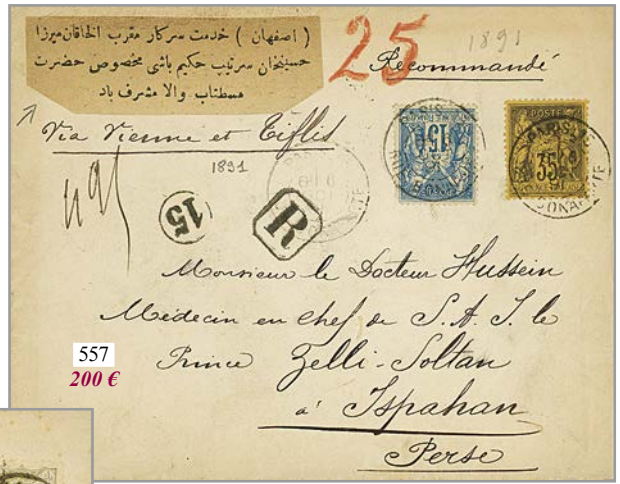 ( اصفهان ) خدمت سركار مقرب الخاقان ميرزا
حسينخان سرتيب حكيم باشى مخصوص حضرت
مستطاب والا مشرف باد
25
1891
Recommandé
Via Vienne et Tiflis
1891
15
R
15c
POSTE
35
PARIS
RUE BONAPARTE
Monsieur le Docteur Hussein
Médecin en chef de S. A. I. le
Prince Zelli-Soltan
à Ispahan
Perse
557
200 €